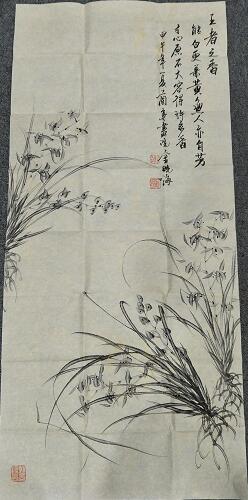 王者之香
能白更兼黄無人亦自芳
寸心原不大容得許多香
甲午年夏